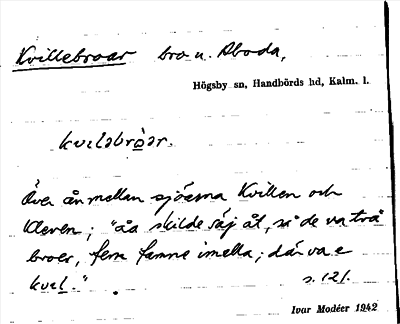 Kvillebroar bro u. Aboda,
Högsby sn, Handbörds hd, Kalm. l.
kvilabròar.
Över ån mellan sjöarna Kvillen och
Kleven; "åa skilde säj åt, så de va två
broer, fem famne imella; där va e
kvil."
s. 121.
Ivar Modéer 1942